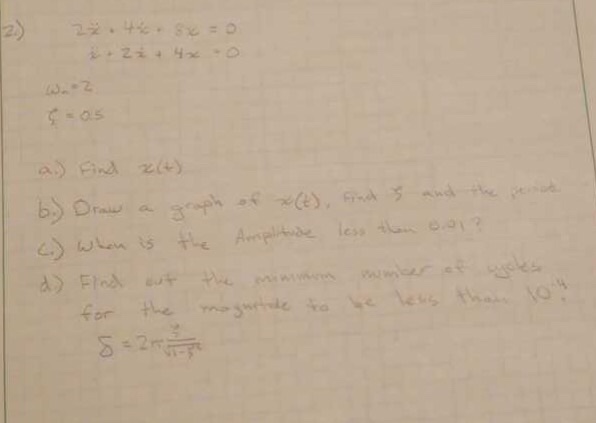 2.) 2ẍ + 4ẋ + 8x = 0
ẍ + 2ẋ + 4x = 0
ωn = 2
ζ = 0.5
a.) Find x(t)
b.) Draw a graph of x(t), find ζ and the period
c.) When is the Amplitude less than 0.01?
d) Find out the minimum number of cycles
for the magnitude to be less than 10⁻⁴.
δ = 2π ζ/√1-ζ²